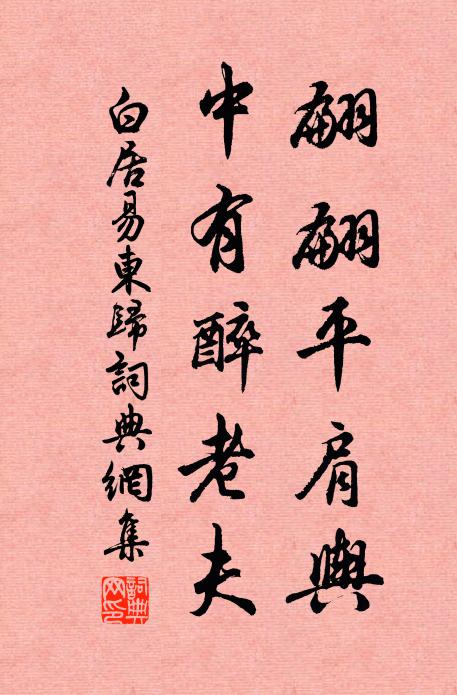 翩翩平肩輿
中有醉老夫
白居易東歸詞典網集
詞典網印